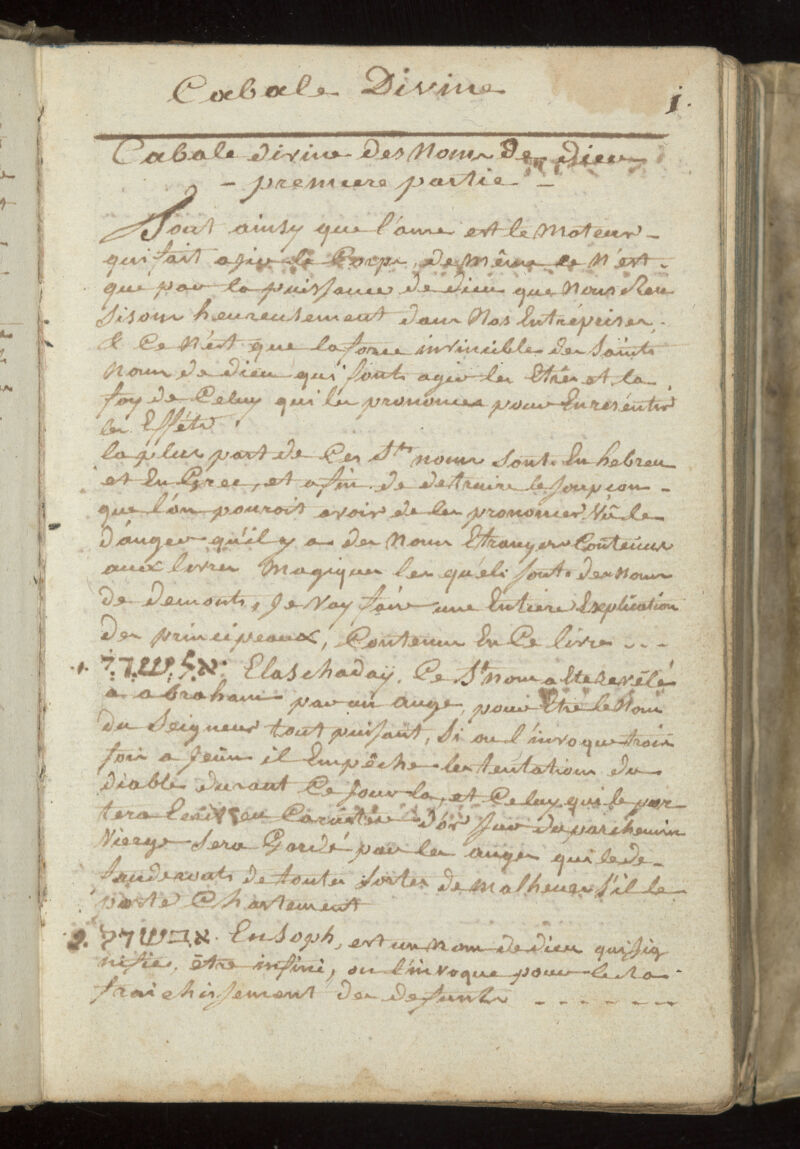 Cabale Divine
1.
Cabale divine des Noms de dieu
- premiere partie -
Tout ainsy que l'ame est le Moteur
qui fait agir le Corps, de même ce N'est
que par la puissance de dieu que Nous Reu
sisons heureusement dans Nos Entreprises,
& Ce N'est que la force invincible des Saints
Noms de dieu qui font agir les Etres et la
foy de Celuy qui les prononce pour En resentir
les Effêts.
la plus part de Ces Sts noms sont En hebreu
et En Grec, et afin de detruire le soupçon
que l'on pouroit avoir de les prononcer Vû le
danger qu'il y a des Noms Etrangers Contenus
aux livres Magiques les quels sont des noms
de demons, Je Vay faire une Entiere Explication
des principeaux, Contenus En Ce livre - - -
1. אל שדי Elaschaday. Ce St nom a Ete revélé
a abraham par un ange, pour Etre le Nom
du Seigneur tout puisant, Si on l'invoque trois
fois a Jeûn il Empêche les tentations du
diable durant Ce Jour la, et Celuy qui le por
tera Ecrit en Caractere d'or sur du parchemin
Vierge sera Gardé par les anges qui le de-
fanderont de toutes sortes de malheurs s'il le
porte Chastement
2. Ensoph, est un nom de dieu qui sig
nifie, être infini, on l'invoque pour le ra
fraichissement des defunts - - - - - -